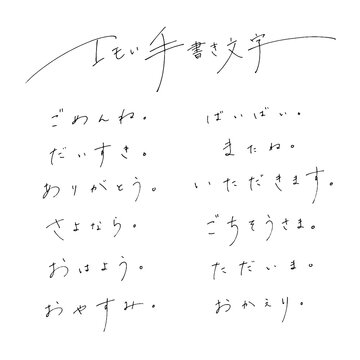 エモい手書き文字
ごめんね。
だいすき。
ありがとう。
さよなら。
おはよう。
おやすみ。
ばいばい。
またね。
いただきます。
ごちそうさま。
ただいま。
おかえり。